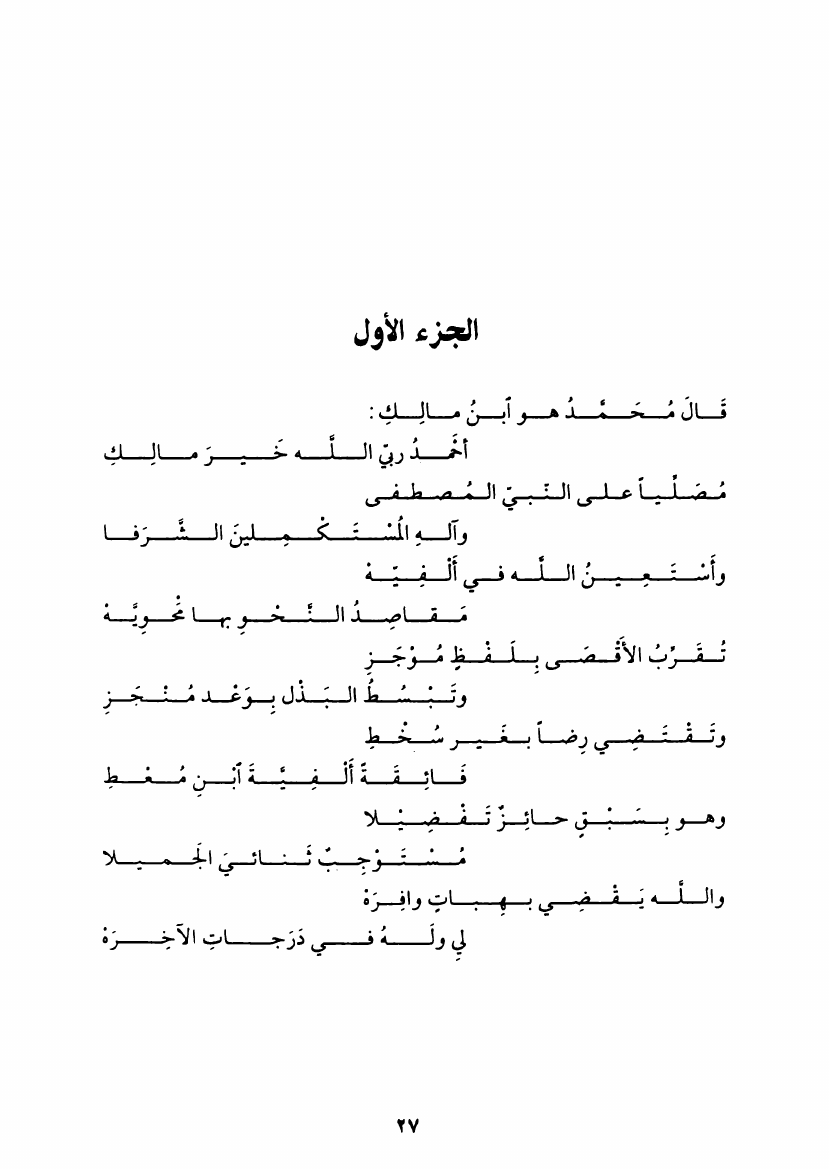 الجزء الأول
قَالَ مُحَمَّدُ هو ٱبنُ مالِكِ :
أَحْمَدُ ربّي اللَّه خَيرَ مالِكِ
مُصَلِّياً على النّبيّ المُصطفى
وآلهِ المُسْتَكْمِلينَ الشَّرَفا
وأَسْتَعينُ اللَّه في أَلْفِيّهْ
مَقاصِدُ النَّحْوِ بها مَحْوِيَّهْ
تُقَرِّبُ الأَقْصَى بِلَفْظٍ مُوْجَزِ
وتَبْسُطُ البَذْلَ بِوَعْدٍ مُنْجَزِ
وتَقْتَضِي رِضاً بغَيرِ سُخْطِ
فَائِقَةً أَلْفِيَّةَ ٱبْنِ مُعْطِ
وهو بِسَبْقٍ حائِزٌ تَفْضِيْلا
مُسْتَوْجِبٌ ثَنائيَ الجَميلا
واللَّه يَقْضِي بهِباتٍ وافِرَهْ
لِي ولَهُ في دَرَجاتِ الآخِرَهْ
٢٧